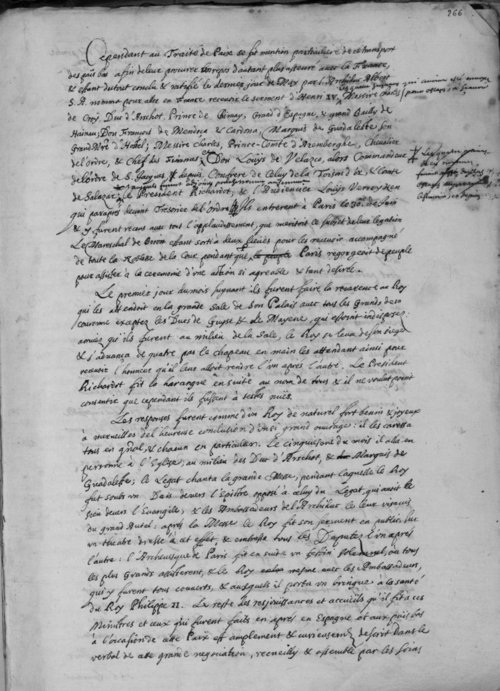 266
Cependant au Traité de Paix se fit mention particuliere de
des païs bas afin de leur procurer un repos d'autant plus asseuré avec la France,
& estant du tout conclu & ratifié le dernier jour de May par l'Archiduc Albert
S. A. nomma pour aller en France recevoir le serment d'Henri IV, Messire
de Croy, Duc d'Arschot, Prince de Chimay, Grand d'Espagne, & grand Bailly de
Hainau, Don Francisco de Mendoça & Cardona, Marquis de Guadaleste son
Grand Mre d'Hostel; Messire Charles, Prince-Comte d'Aremberghe, Chevalier
de l'ordre, & Chef des finances, Don Louÿs de Velasco, alors Commandeur
de l'ordre de S. Jacques, & depuis, Confrere de Celuy de la Toison d'or, & Comte
de Salazar, le President Richardot, & l'Audiencier Louÿs Verreÿcken
qui paraprés devint Tresorier de l'ordre. Ils entrerent à Paris le de Juin
& y furent receus avec tout l'applaudissement, que meritoit le sujet de leur legation
Le Mareschal de Biron estant sorti à deux lieües pour les recevoir accompagné
de toute la Noblesse de la Cour pendant que Paris regorgeoit de peuple
pour assister à la ceremonie d'une action si agreable & tant desirée.
Le premier jour du mois suivant ils furent faire la reverence au Roy
qui les attendoit en la grande Sale de son Palais avec tous les Grands de sa
couronne exceptez les Ducs de Guyse & de Mayene, qui estoient indisposez:
arrivés qu'ils furent au milieu de la Sale, le Roy se leva de son siege
& s'advança de quatre pas le chapeau en main les attendant ainsi pour
recevoir l'honneur qu'il leur alloit rendre l'un aprés l'autre. Le President
Richardot fit la harangue en suite au nom de tous & il ne voulut point
consentir que cependant ils fussent à testes nües.
Les responses furent comme d'un Roy de naturel fort benin & joyeux
à merveilles de l'heureuse conclusion d'un si grand ouvrage: il les caressa
tous en gñral, & chacun en particulier. Le cinquiesme du mois il alla en
personne à l'Eglise, au milieu des Duc d'Arschot, & Marquis de
Guadaleste, le Legat chanta la grande Messe, pendant laquelle le Roy
fut soubs un Dais devers l'Epistre opposé à celuy du Legat, qui avoit le
sien devers l'Evangile, & les Ambassadeurs de l'Archiduc le leur
du grand Autel: aprés la Messe le Roy fit son serment en public sur
un theatre dressé à cet effet, & embrassa tous les Deputez l'un aprés
l'autre: l'Archevesque de Paris fit en suite un festin solemnel, où tous
les plus Grands assisterent, & le Roy mesme avec les Ambassadeurs,
qui y furent tous couverts, & ausquels il porta un brindis à la santé
du Roy Philippe II. Le reste des resjouissances et accueils qu'il fit à ces
Ministres et ceux qui furent faits en aprés en Espagne et aux païs bas
à l'occasion de cette Paix est amplement & curieusement descrit dans le
verbal de cette grande negociation, recueilly & assemblé par les soins